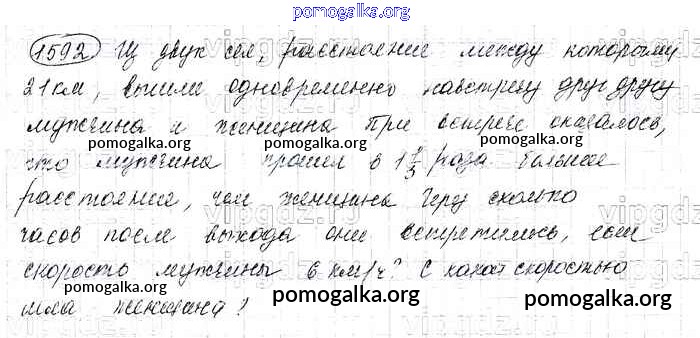 pomogalka.org
1592 Из двух сел, расстояние между которыми
21 км, вышли одновременно навстречу друг другу
мужчина и женщина При встрече оказалось,
pomogalka.org pomogalka.org
что мужчина прошел в 1 1/3 раза большее
расстояние, чем женщина Через сколько
vipgdz.ru vipgdz.ru vipgdz.ru
часов после выхода они встретились, если
скорость мужчины 6 км/ч? С какой скоростью
pomogalka.org pomogalka.org
шла женщина?